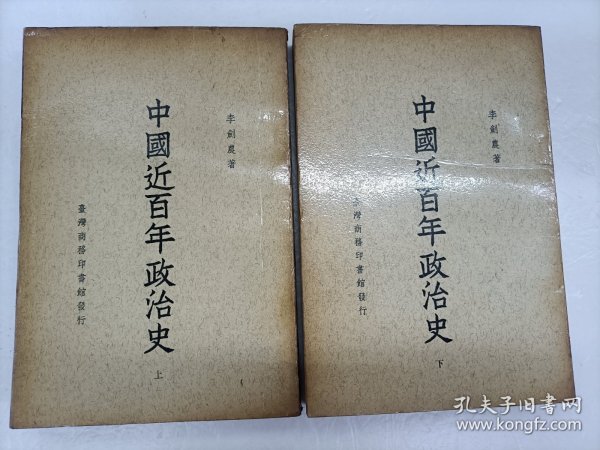 李劍農著
中國近百年政治史
上
臺灣商務印書館發行
李劍農著
中國近百年政治史
下
臺灣商務印書館發行
孔夫子旧书网
www.kongfz.com